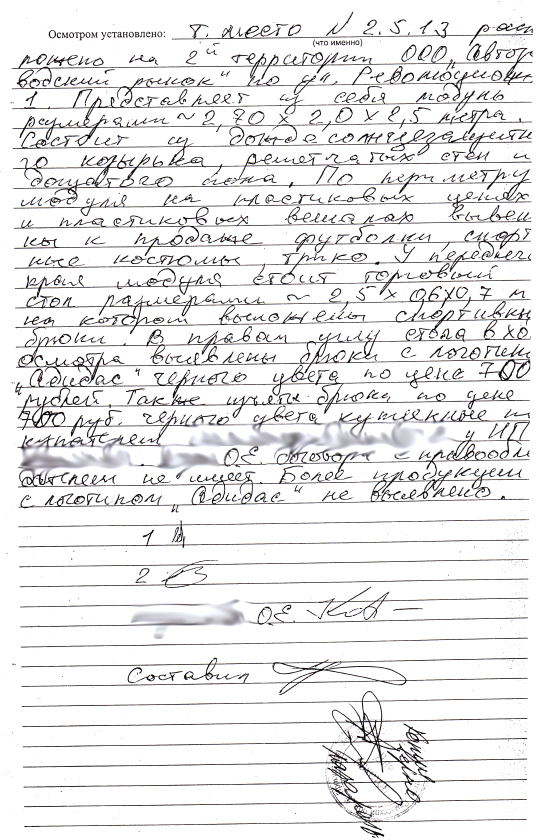 Осмотром установлено: т. место N 2.5.13 расп
(что именно)
ложено на 2й территории ООО „Автоза
водский рынок“ по ул. Революционн
1 Представляет из себя модуль
размерами ~ 2,70 х 2,0 х 2,5 метра.
Состоит из дождесолнцезащитно
го козырька, решетчатых стен и
дощатого пола. По периметру
модуля на пластиковых цепях
и пластиковых вешалах вывеше
ны к продаже футболки, спорт
ные костюмы, трико. У переднего
края модуля стоит торговый
стол размерами ~ 2,5 х 0,6х0,7 м
на котором выложены спортивны
брюки. В правом углу стола в хо
осмотра выявлены брюки с логотип
„Адидас“ черного цвета по цене 700
рублей. Также изъяты брюки по цене
700 руб. черного цвета купленные п
купателем у ИП
О.Е. договора с правообл
дателем не имеет. Более продукции
с логотипом „Адидас“ не выявлено.
1
2
О.Е.
Составил